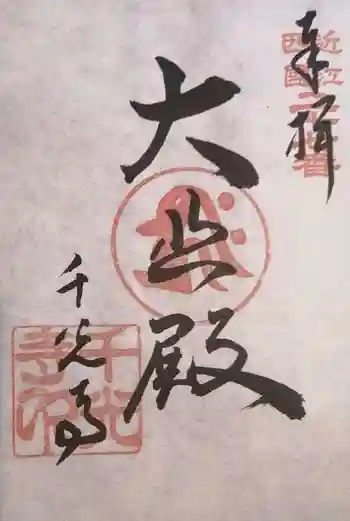 奉拝
近江
西国
大悲殿
千光寺
千光
寺印